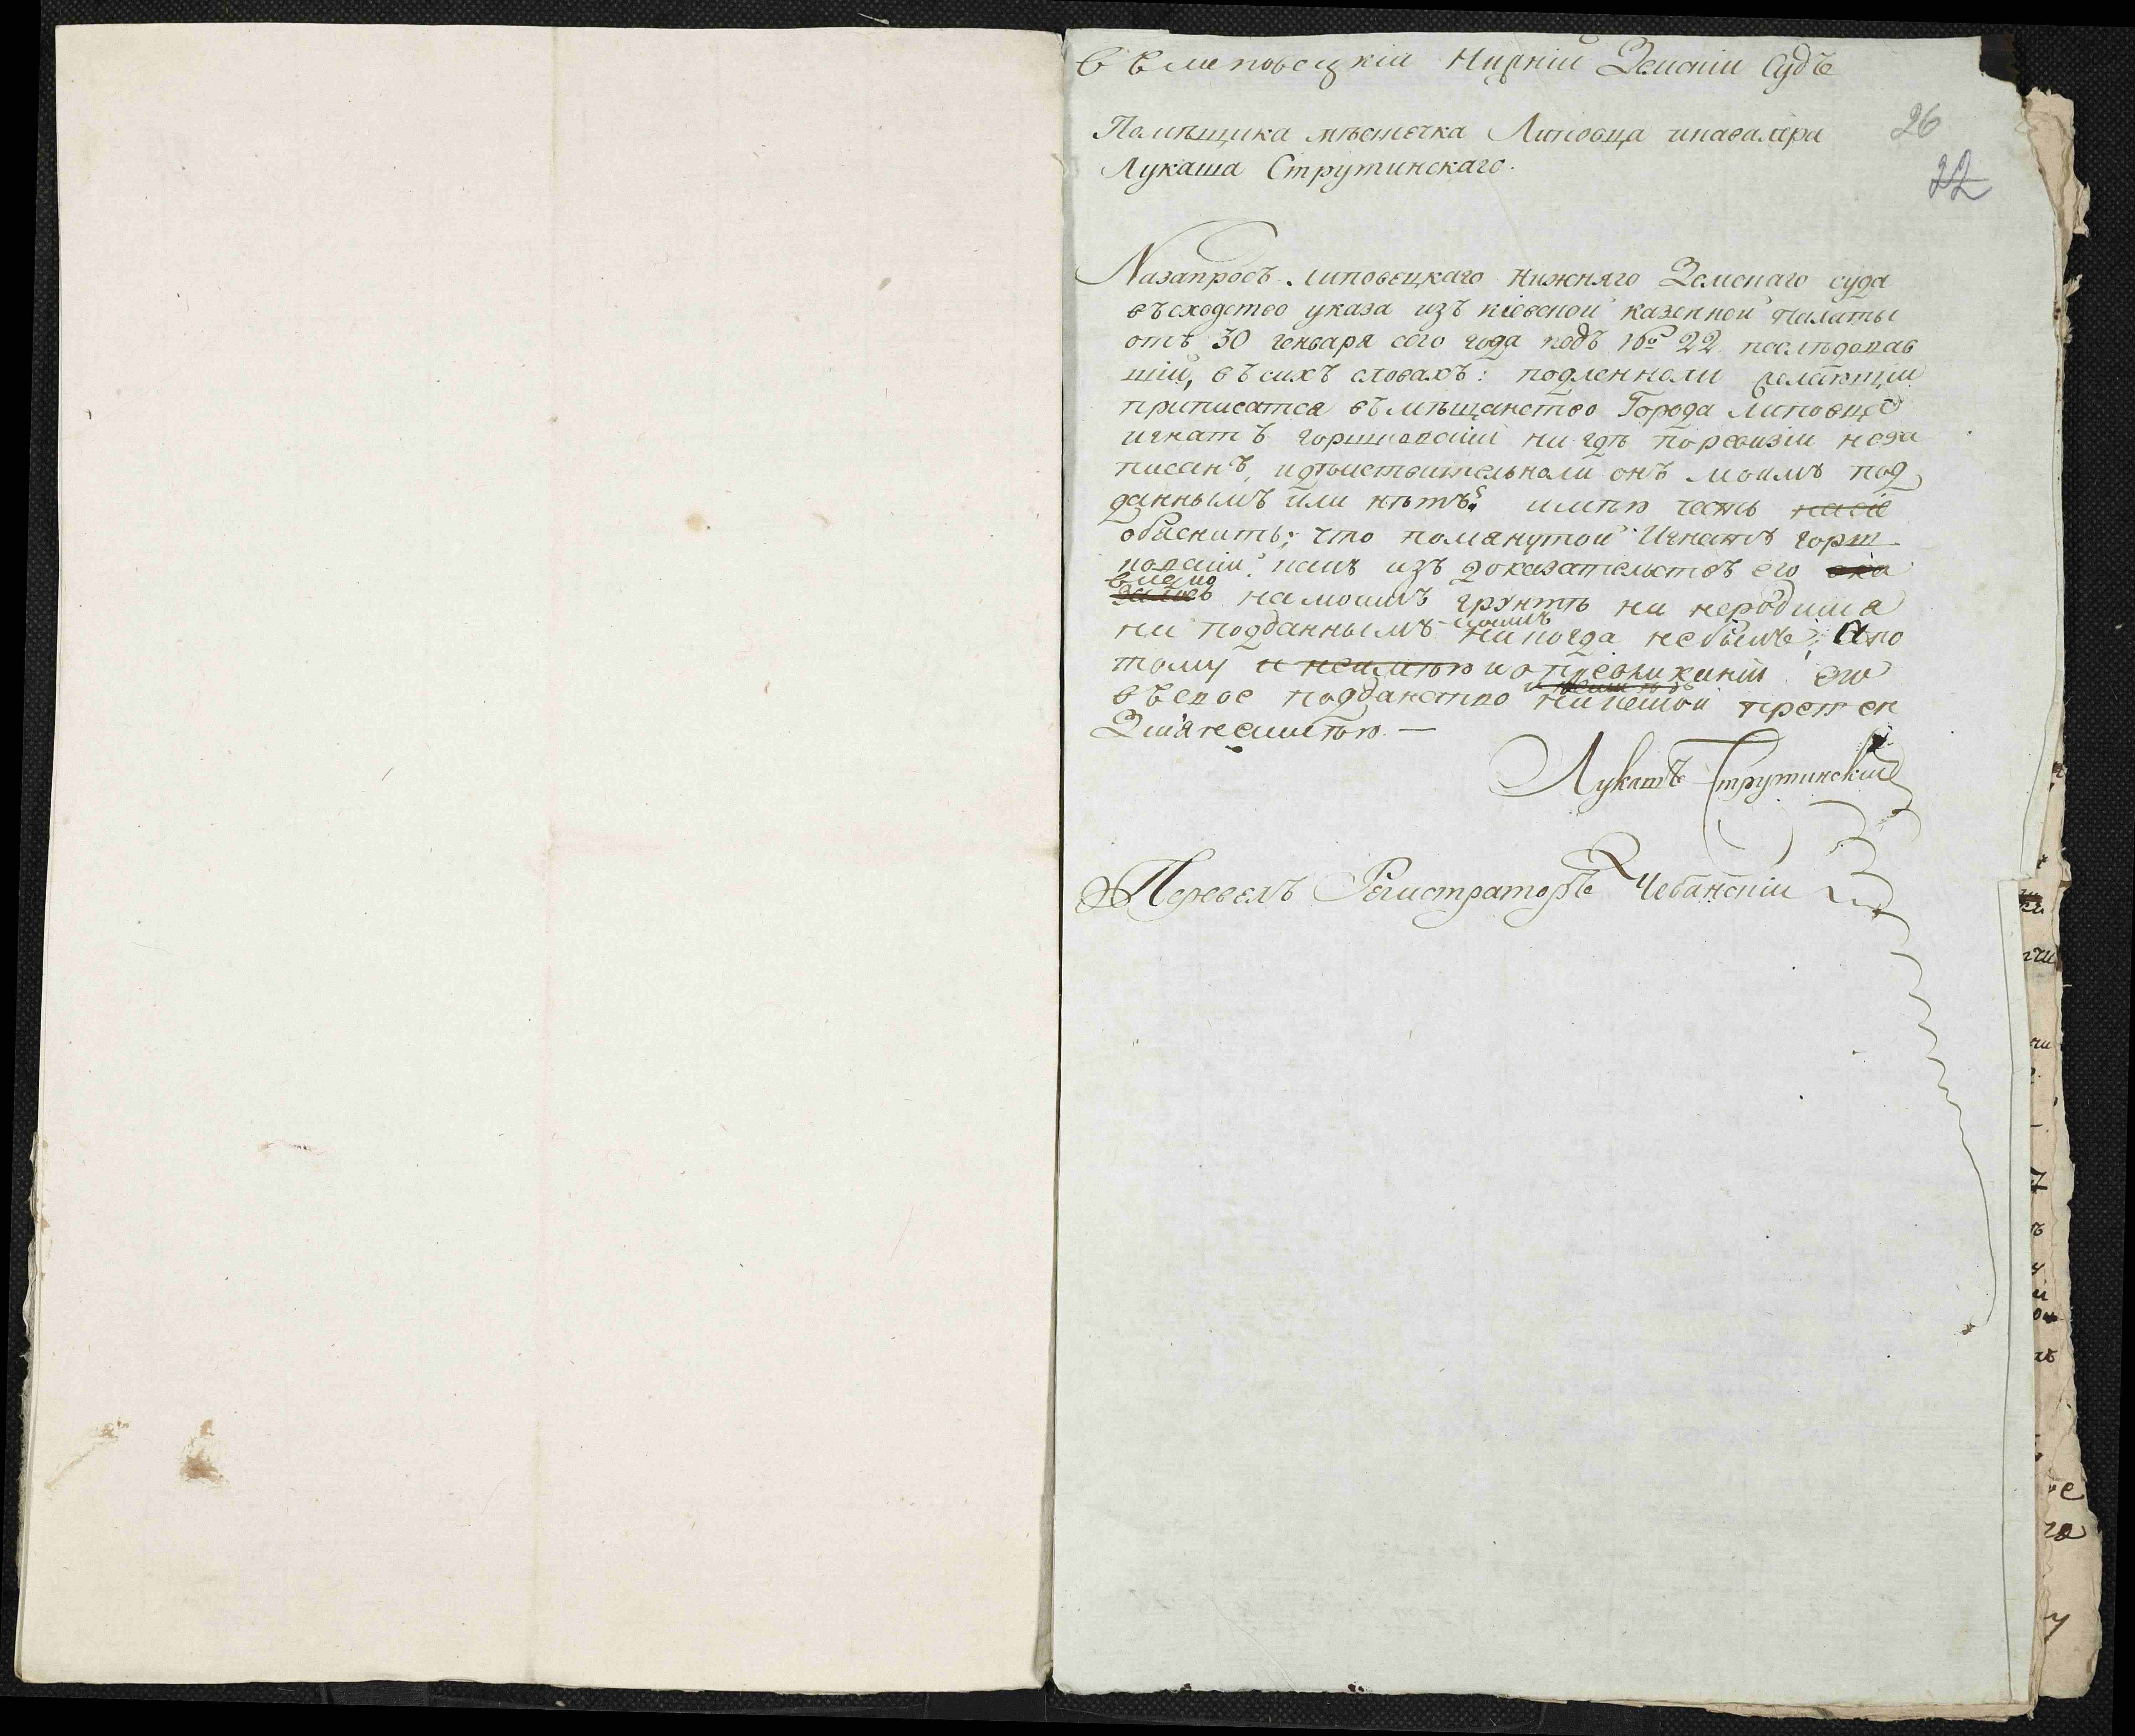 въ Липовецкій Нижній Земскій Судъ
Помѣщика мѣстечка Липовца икавалера
26
Лукаша Струтинскаго.
22
Назапросъ липовецкаго Нижняго Земскаго суда
въсходство указа изъ кіевской казенной палаты
отъ 30 генваря сего года подъ № 22 послѣдовав
шій, въсихъ словахъ: подленноли желающій
приписатся въмѣщанство Города Липовца
игнатъ горшковскій ни гдѣ поревизіи неза
писанъ, идѣйствительноли онъ моимъ под
даннымъ или нѣтъ? имѣю честь насіе
обяснить; что помянутой Игнатъ горш
ковскій какъ изъ доказательствъ его ока
видно
залось намоимъ грунтѣ ни неродился
моимъ
ни подданнымъ никогда небылъ; Апо
тому и неимѣю ио привлеченіи его
въсвое подданство никакой претен
зіи янеимѣю. —
Лукашъ Струтинскій
Перевелъ Регистраторъ Чебанскій